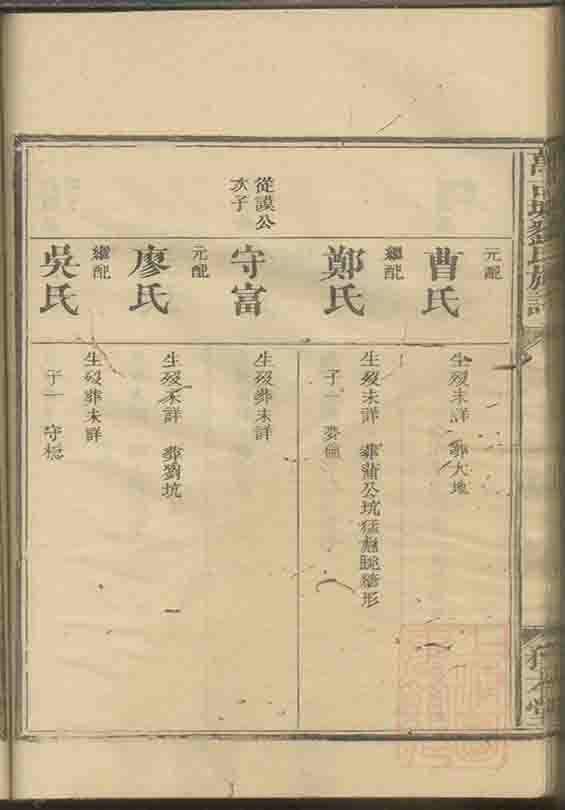 元配
曹氏
生歿未詳 葬大地
繼配
鄭氏
生歿未詳 葬蕭公坑猛虎跳牆形
子一
從謨公
次子
守富
生歿葬未詳
元配
廖氏
生歿未詳 葬劉坑
繼配
吳氏
生歿葬未詳
子一 守穩
劉氏族譜